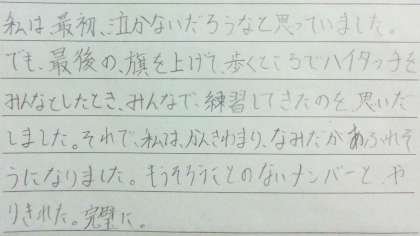 私は、最初、泣かないだろうなと思っていました。
でも、最後の、旗を上げて、歩くところでハイタッチを
みんなとしたとき、みんなで、練習してきたのを、思いだ
しました。それで、私は、かんきわまり、なみだがあふれそ
うになりました。もうそろうことのないメンバーと、や
りきれた。完璧に。